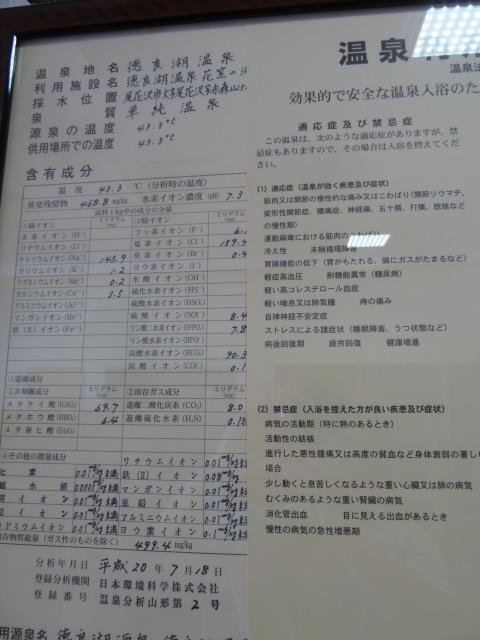 温泉地名 徳良湖温泉
利用施設名 徳良湖温泉 花笠の
採水位置 尾花沢市大字尾花沢字赤森山
泉質 単純温泉
源泉の温度 43.3℃
供用場所での温度 43.3℃
含有成分
温度 43.3 ℃ (分析時の温度)
蒸発残留物 468.8 mg/kg 水素イオン濃度(pH) 7.3
試料1kg中の成分の分量
①陽イオン ミリグラム(mg) ②陰イオン ミリグラム(mg)
水素イオン(H⁺) フッ素イオン(F⁻)
リチウムイオン(Li⁺) 塩素イオン(Cl⁻) 159.4
ナトリウムイオン(Na⁺) 145.9 臭素イオン(Br⁻) 0.4
カリウムイオン(K⁺) 1.2 ヨウ素イオン(I⁻)
マグネシウムイオン(Mg²⁺) 0.2 水酸イオン(OH⁻)
カルシウムイオン(Ca²⁺) 3.5 硫化水素イオン(HS⁻)
アルミニウムイオン(Al³⁺) 硫酸水素イオン(HSO₄⁻)
マンガンイオン(Mn²⁺) 硫酸イオン(SO₄²⁻) 8.4
鉄(Ⅱ)イオン(Fe²⁺) リン酸二水素イオン(H₂PO₄⁻) 7.8
リン酸水素イオン(HPO₄²⁻)
炭酸水素イオン(HCO₃⁻) 90.3
炭酸イオン(CO₃²⁻) 0.1
③遊離成分
①非解離成分 ミリグラム(mg) ②溶存ガス成分 ミリグラム(mg)
メタケイ酸(H₂SiO₃) 69.7 遊離二酸化炭素(CO₂) 8.0
メタホウ酸(HBO₂) 6.4 遊離硫化水素(H₂S)
メタ亜ヒ酸(HAsO₂)
④その他の微量成分 リチウムイオン 0.01mg/kg未満
ヒ素 0.01mg/kg未満 鉄(Ⅱ)イオン 0.08mg/kg
総水銀 0.0005mg/kg未満 マンガンイオン 0.01mg/kg
銅イオン 0.01mg/kg未満 亜鉛イオン 0.01mg/kg
鉛イオン 0.01mg/kg未満 アルミニウムイオン 0.01mg/kg
カドミウムイオン 0.01mg/kg未満 ヨウ素イオン 0.1mg/kg
溶存物質総量(ガス性のものを除く)
499.4 mg/kg
分析年月日 平成20年7月18日
登録分析機関 日本環境科学株式会社
登録番号 温泉分析山形第2号
用源泉名 徳良湖温泉
温泉
温泉法
効果的で安全な温泉入浴のた
適応症及び禁忌症
この温泉は、次のような適応症がありますが、禁
忌症もありますので、その場合は入浴を控えてくだ
さい。
(1) 適応症(温泉が効く疾患及び症状)
筋肉又は関節の慢性的な痛み又はこわばり(関節リウマチ、
変形性関節症、腰痛症、神経痛、五十肩、打撲、捻挫など
の慢性期)
運動麻痺における筋肉のこわばり
冷え性 末梢循環障害
胃腸機能の低下(胃がもたれる、腸にガスがたまるなど)
軽症高血圧 耐糖能異常(糖尿病)
軽い高コレステロール血症
軽い喘息又は肺気腫 痔の痛み
自律神経不安定症
ストレスによる諸症状(睡眠障害、うつ状態など)
病後回復期 疲労回復 健康増進
(2) 禁忌症(入浴を控えた方が良い疾患及び症状)
病気の活動期(特に熱のあるとき)
活動性の結核
進行した悪性腫瘍又は高度の貧血など身体衰弱の著しい
場合
少し動くと息苦しくなるような重い心臓又は肺の病気
むくみのあるような重い腎臓の病気
消化管出血 目に見える出血があるとき
慢性の病気の急性増悪期